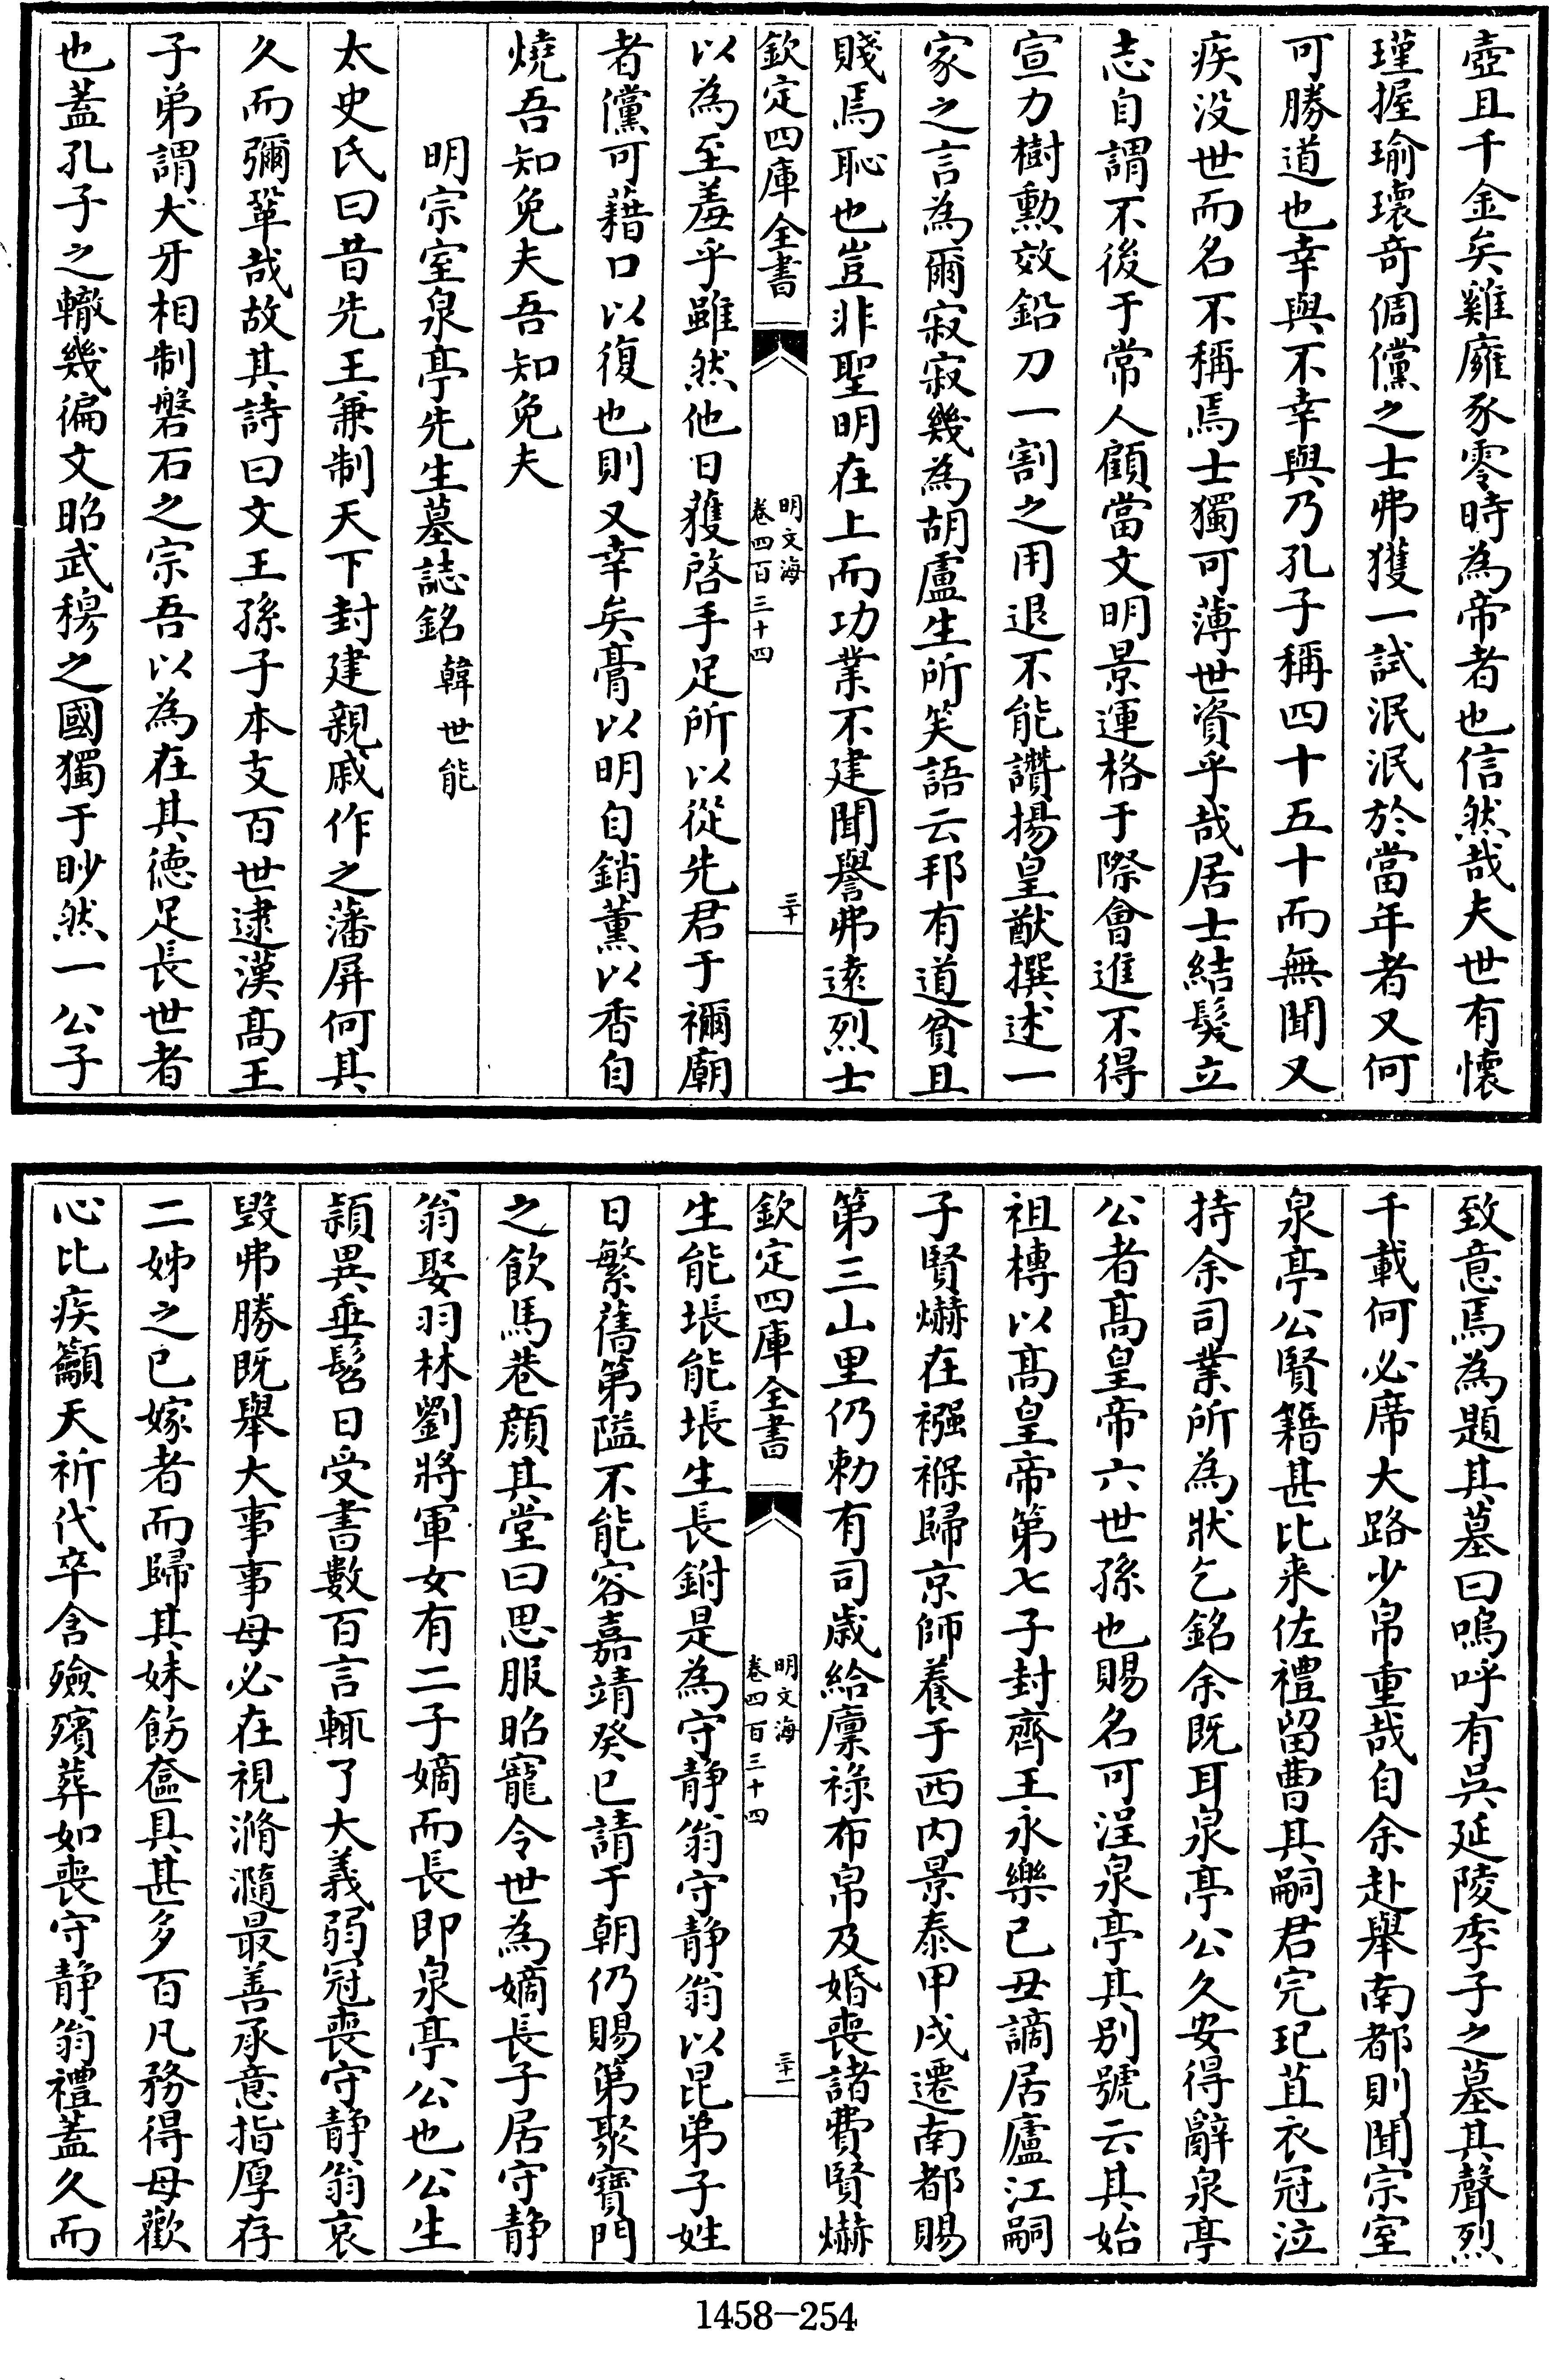 壺且千金矣雞廱豕零時為帝者也信然哉夫世有懷
瑾握瑜瓌奇倜儻之士弗獲一試泯泯於當年者又何
可勝道也幸與不幸與乃孔子稱四十五十而無聞又
疾没世而名不稱焉士獨可薄世資乎哉居士結髮立
志自謂不後于常人顧當文明景運格于際會進不得
宣力樹勲效鉛刀一割之用退不能讚揚皇猷撰述一
家之言為爾寂寂幾為胡盧生所笑語云邦有道貧且
賤焉恥也豈非聖明在上而功業不建聞譽弗逺烈士
欽定四庫全書
明文海
卷四百三十四
三十
以為至羞乎雖然他日獲啓手足所以從先君于禰廟
者儻可藉口以復也則又幸矣膏以明自銷薰以香自
燒吾知免夫吾知免夫
明宗室泉亭先生墓誌銘 韓世能
太史氏曰昔先王兼制天下封建親戚作之藩屏何其
久而彌鞏哉故其詩曰文王孫子本支百世逮漢髙王
子弟謂犬牙相制磐石之宗吾以為在其德足長世者
也蓋孔子之轍幾徧文昭武穆之國獨于眇然一公子
致意焉為題其墓曰嗚呼有吳延陵季子之墓其聲烈
千載何必席大路少帛重哉自余赴舉南都則聞宗室
泉亭公賢籍甚比来佐禮留曹其嗣君完玘苴衣冠泣
持余司業所為狀乞銘余既耳泉亭公久安得辭泉亭
公者髙皇帝六世孫也賜名可浧泉亭其别號云其始
祖榑以髙皇帝第七子封齊王永樂己丑謫居廬江嗣
子賢爀在襁褓歸京師養于西内景泰甲戌遷南都賜
第三山里仍勅有司歲給廩祿布帛及婚喪諸費賢爀
欽定四庫全書
明文海
卷四百三十四
三十一
生能㙊能㙊生長鉜是為守静翁守静翁以昆弟子姓
日繁舊第隘不能容嘉靖癸巳請于朝仍賜第聚寳門
之飲馬巷顔其堂曰思服昭寵令世為嫡長子居守静
翁娶羽林劉將軍女有二子嫡而長即泉亭公也公生
頴異垂髫日受書數百言輒了大義弱冠喪守静翁哀
毀弗勝既舉大事事母必在視滫瀡最善承意指厚存
二姊之已嫁者而歸其妹飭奩具甚多百凡務得母歡
心比疾籲天祈代卒含殮殯葬如喪守静翁禮蓋久而
1458-254